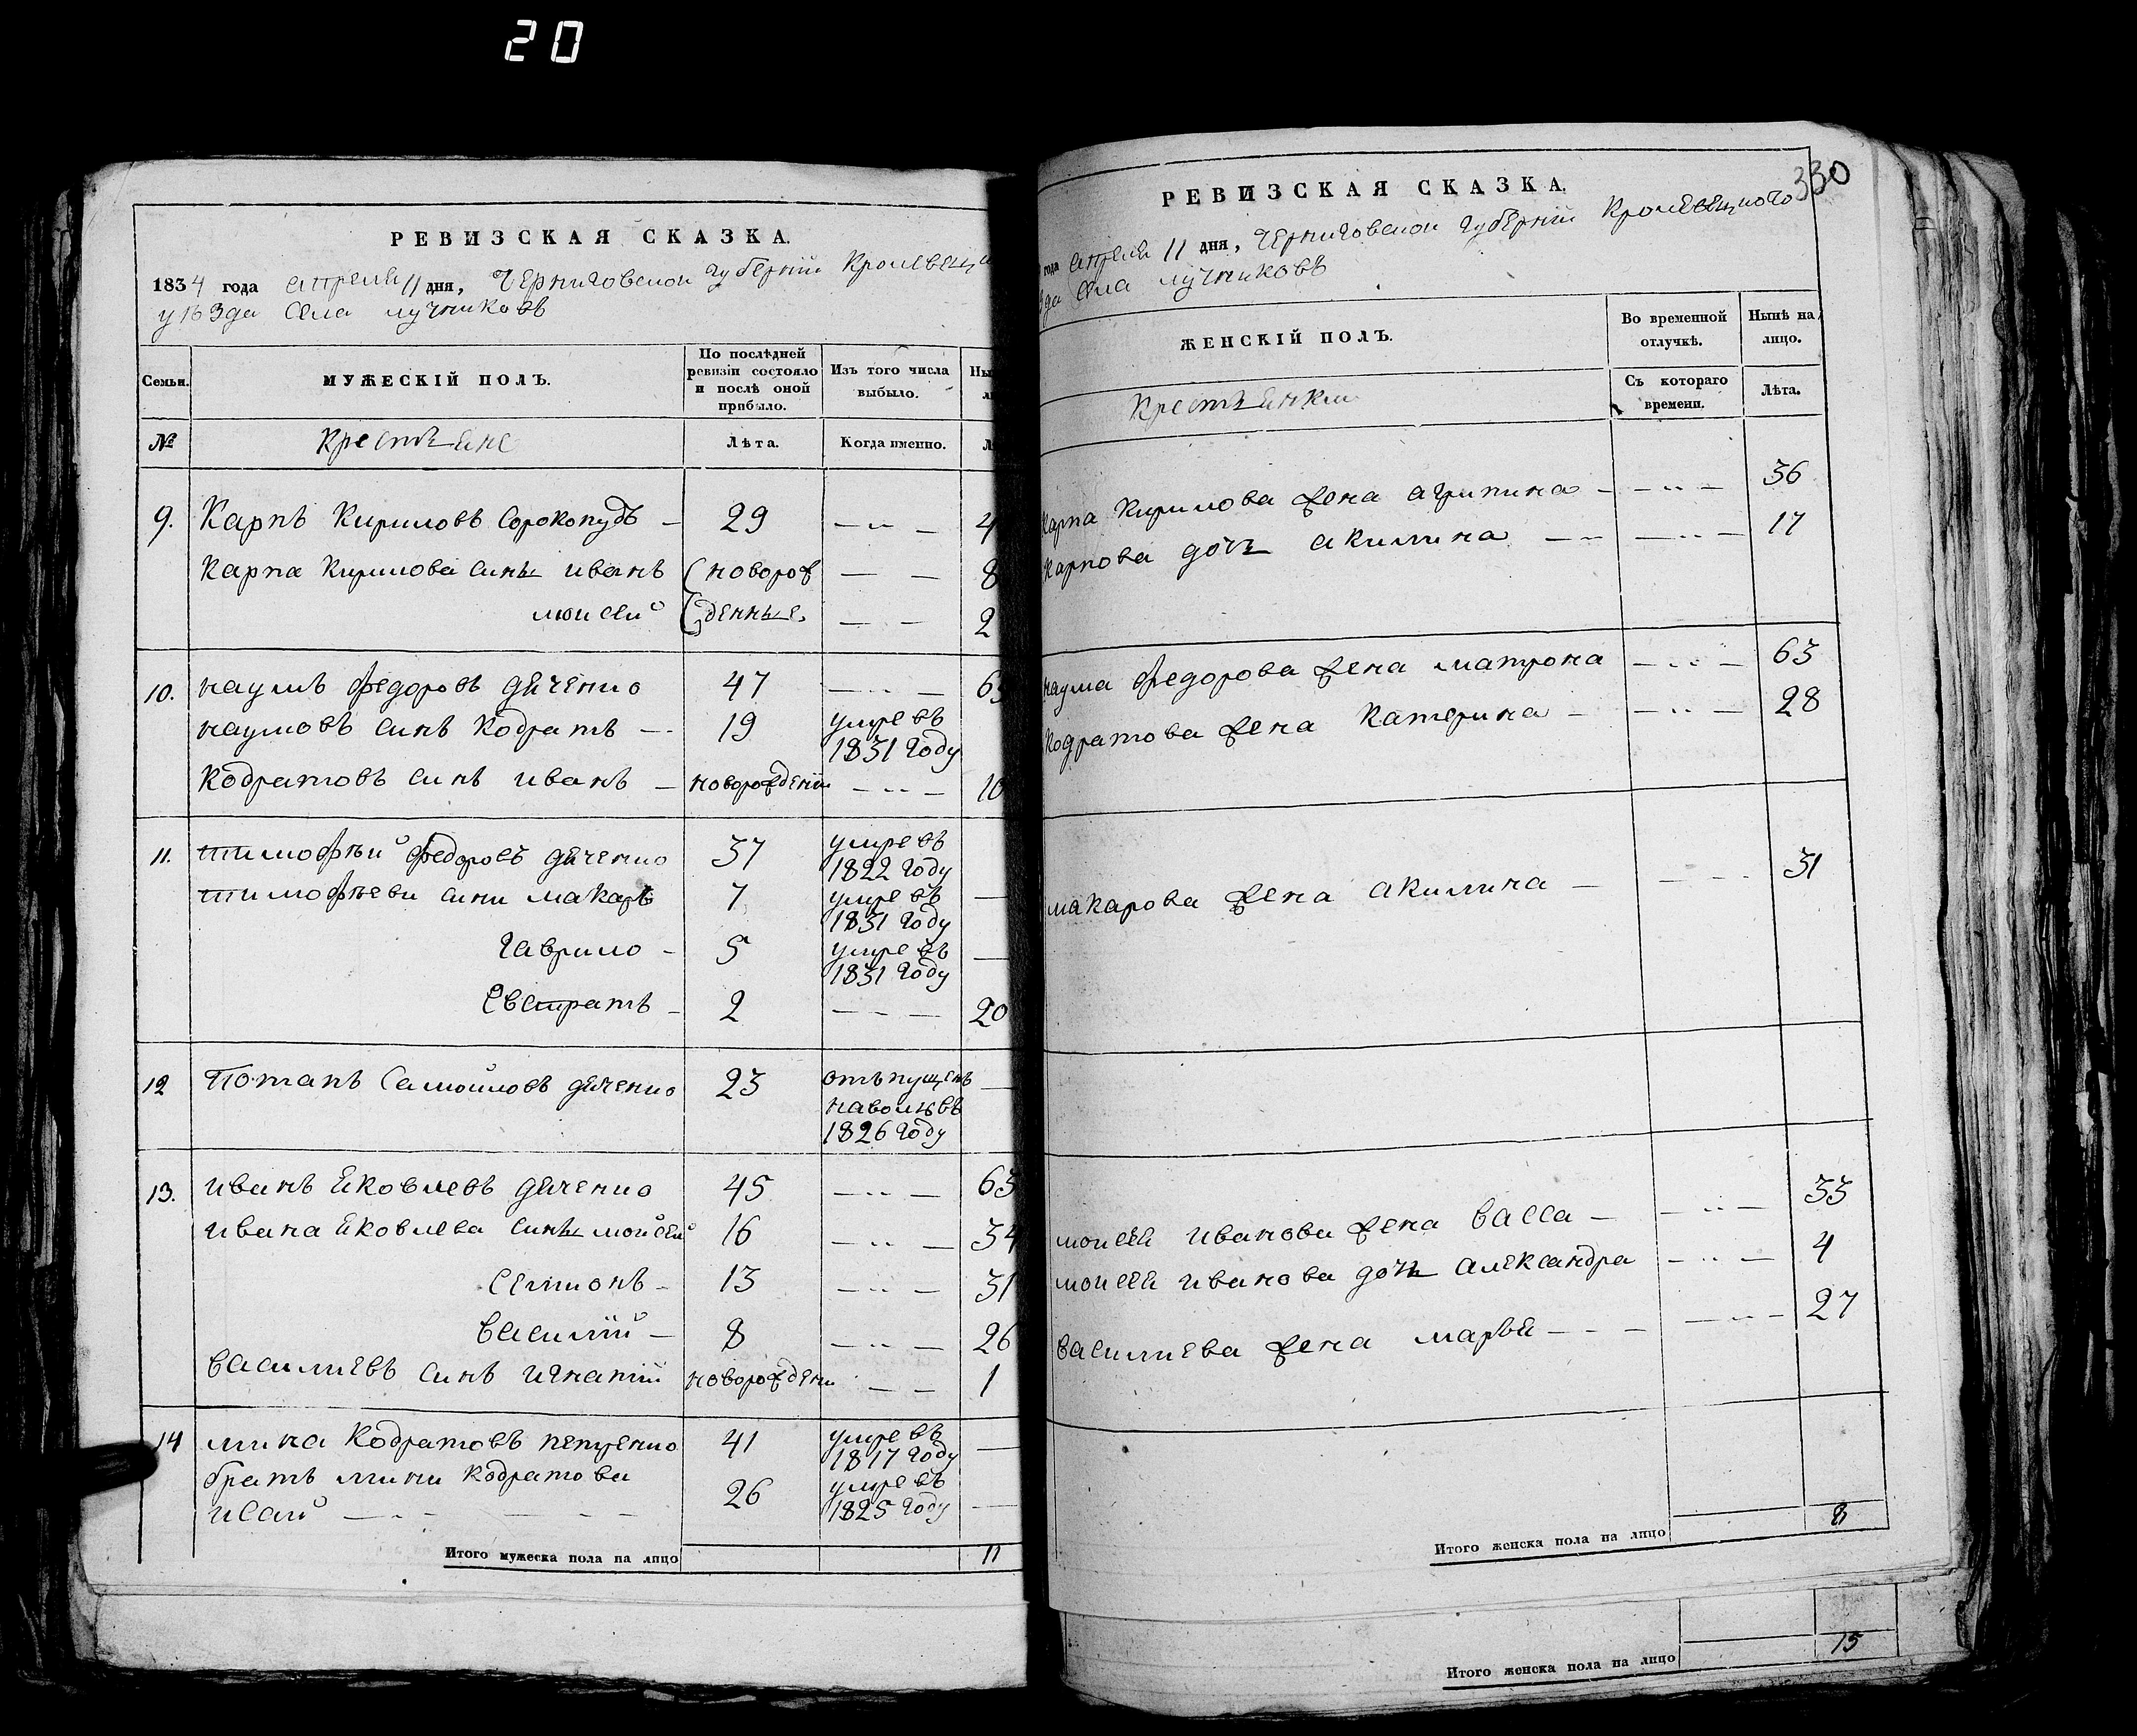 20
РЕВИЗСКАЯ СКАЗКА.
1834 года апреля 11 дня, Черниговской губерній Кролевец
уѣзда села лучниковъ
Семьи. МУЖЕСКІЙ ПОЛЪ. По послѣдней ревизіи состояло и послѣ оной прибыло. Изъ того числа выбыло. Ны
№ Крестьяне Лѣта. Когда именно. Л
9. Карпъ Кириловъ Сорокопудъ 29 4
Карпа Кирилова сины иванъ (новорож 8
моисей (денные. 2
10. наумъ федоровъ дяченко 47 6
наумовъ синъ Кодратъ 19 умре въ
1831 году
Кодратовъ синъ иванъ новорожденій 10
11. тимофѣй федоровъ дяченко 37 умре въ
1822 году
тимофѣеви сини макаръ 7 умре въ
1831 году
гаврило 5 умре въ
1831 году
Евстратъ 2 20
12 Потапъ Самойловъ дяченко 23 отъпущенъ
наволю въ
1826 году
13. иванъ яковлевъ дяченко 45 63
ивана яковлева сины мойсей 16 34
Семионъ 13 31
василій 8 26
василиевъ синъ игнатій новорождени 1
14 мина Кодратовъ 41 умре въ
1817 году
братъ мини Кодратови умре въ
исай 26 1825 году
Итого мужеска пола на лицо 11
330
РЕВИЗСКАЯ СКАЗКА.
года апреля 11 дня, Черниговской губерній Кролевецкого
зда села лучниковъ
ЖЕНСКІЙ ПОЛЪ. Во временной отлучкѣ. Нынѣ на лицо.
Крестьянки Съ котораго времени. Лѣта.
Карпа Кирилова жена агрипина 36
Карпова дочь акилина 17
наума федорова жена матрона 63
Кодратова жена Катерина 28
макарова жена акилина 31
моисея иванова жена васса 33
моисея иванова дочь александра 4
василиева жена марья 27
Итого женска пола на лицо 8
Итого женска пола на лицо 15